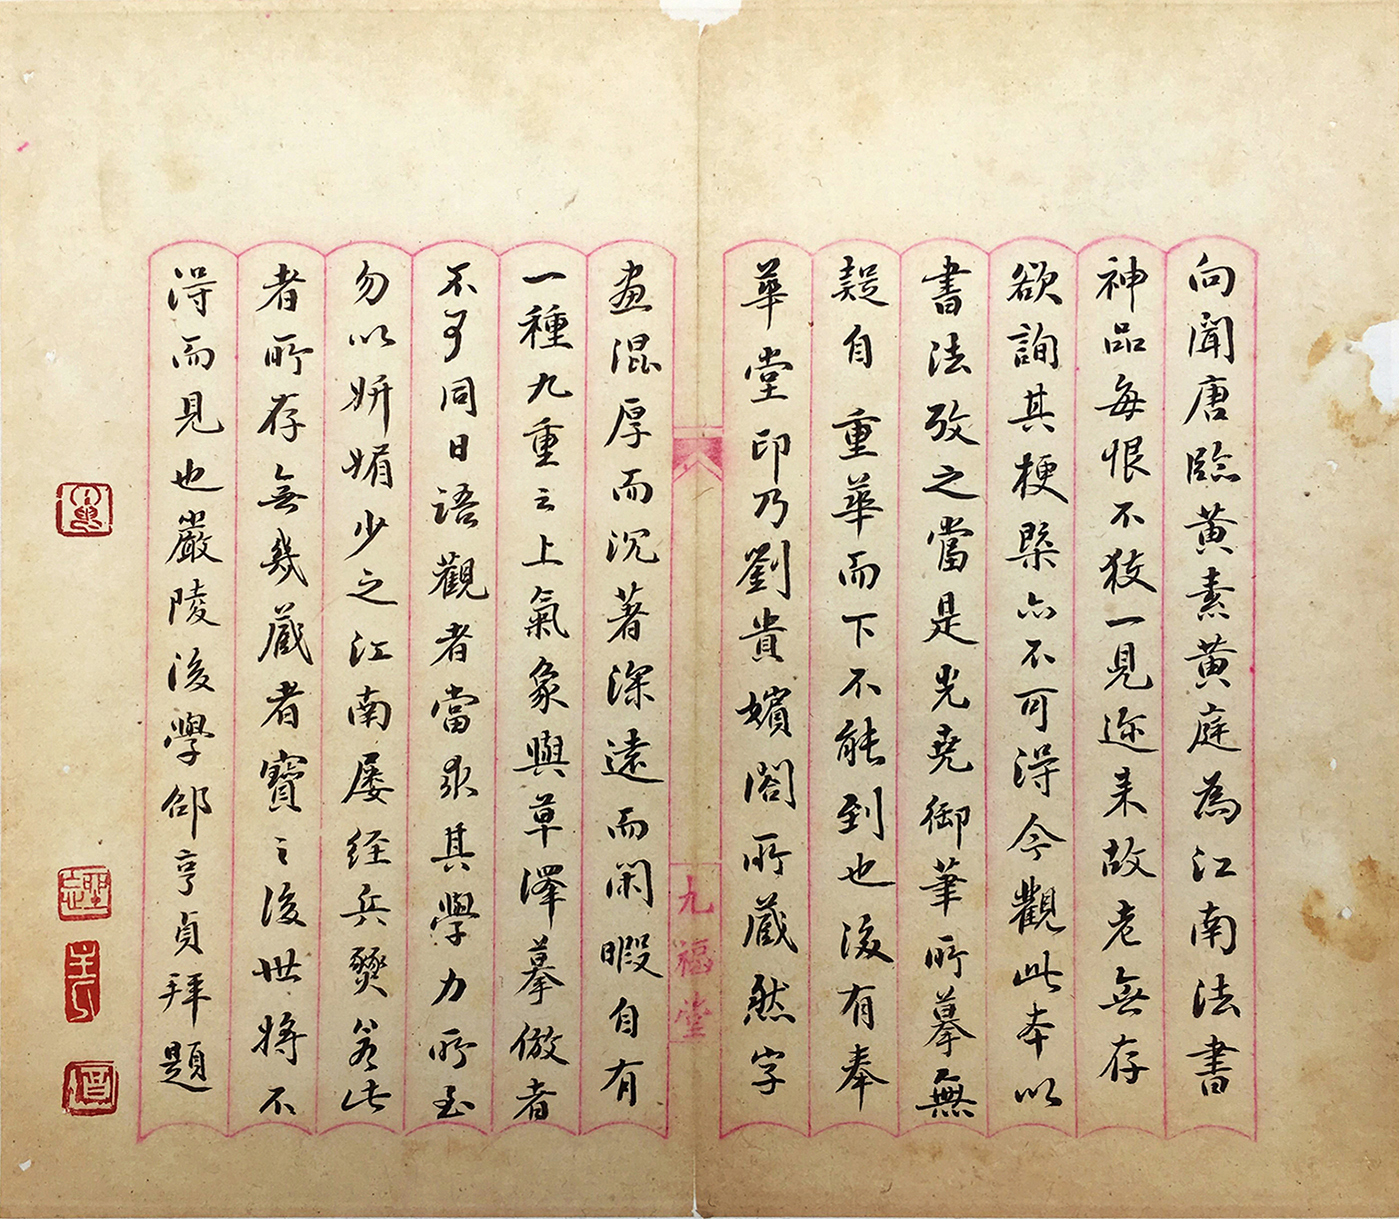 向聞唐臨黃素黃庭為江南法書
神品每恨不獲一見邇来故老無存
欲詢其梗槩亦不可得今觀此本以
書法攷之當是光堯御筆所摹無
疑自重華而下不能到也後有奉
華堂印乃劉貴嬪閣所蔵然字
畫混厚而沉著深遠而閑暇自有
一種九重之上氣象與草澤摹倣者
不可同日語觀者當求其學力所至
勿以妍媚少之江南屡经兵燹若此
者所存無幾蔵者寶之後世将不
得而見也嚴陵後學邵亨貞拜題
九福堂